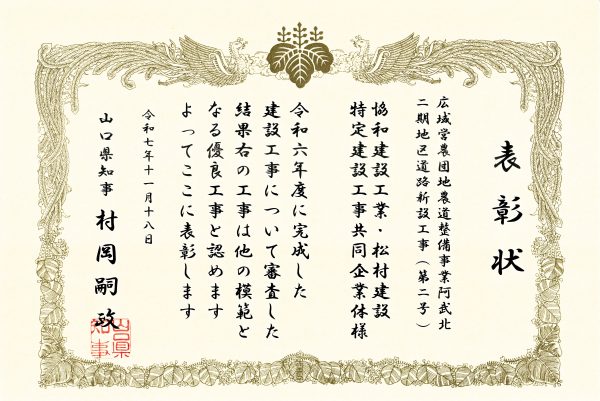 表彰状
広域営農団地農道整備事業阿武北
二期地区道路新設工事（第二号）
協和建設工業・松村建設
特定建設工事共同企業体様
令和六年度に完成した
建設工事について審査した
結果右の工事は他の模範と
なる優良工事と認めます
よってここに表彰します
令和七年十一月十八日
山口県知事 村岡嗣政
山口県
知事